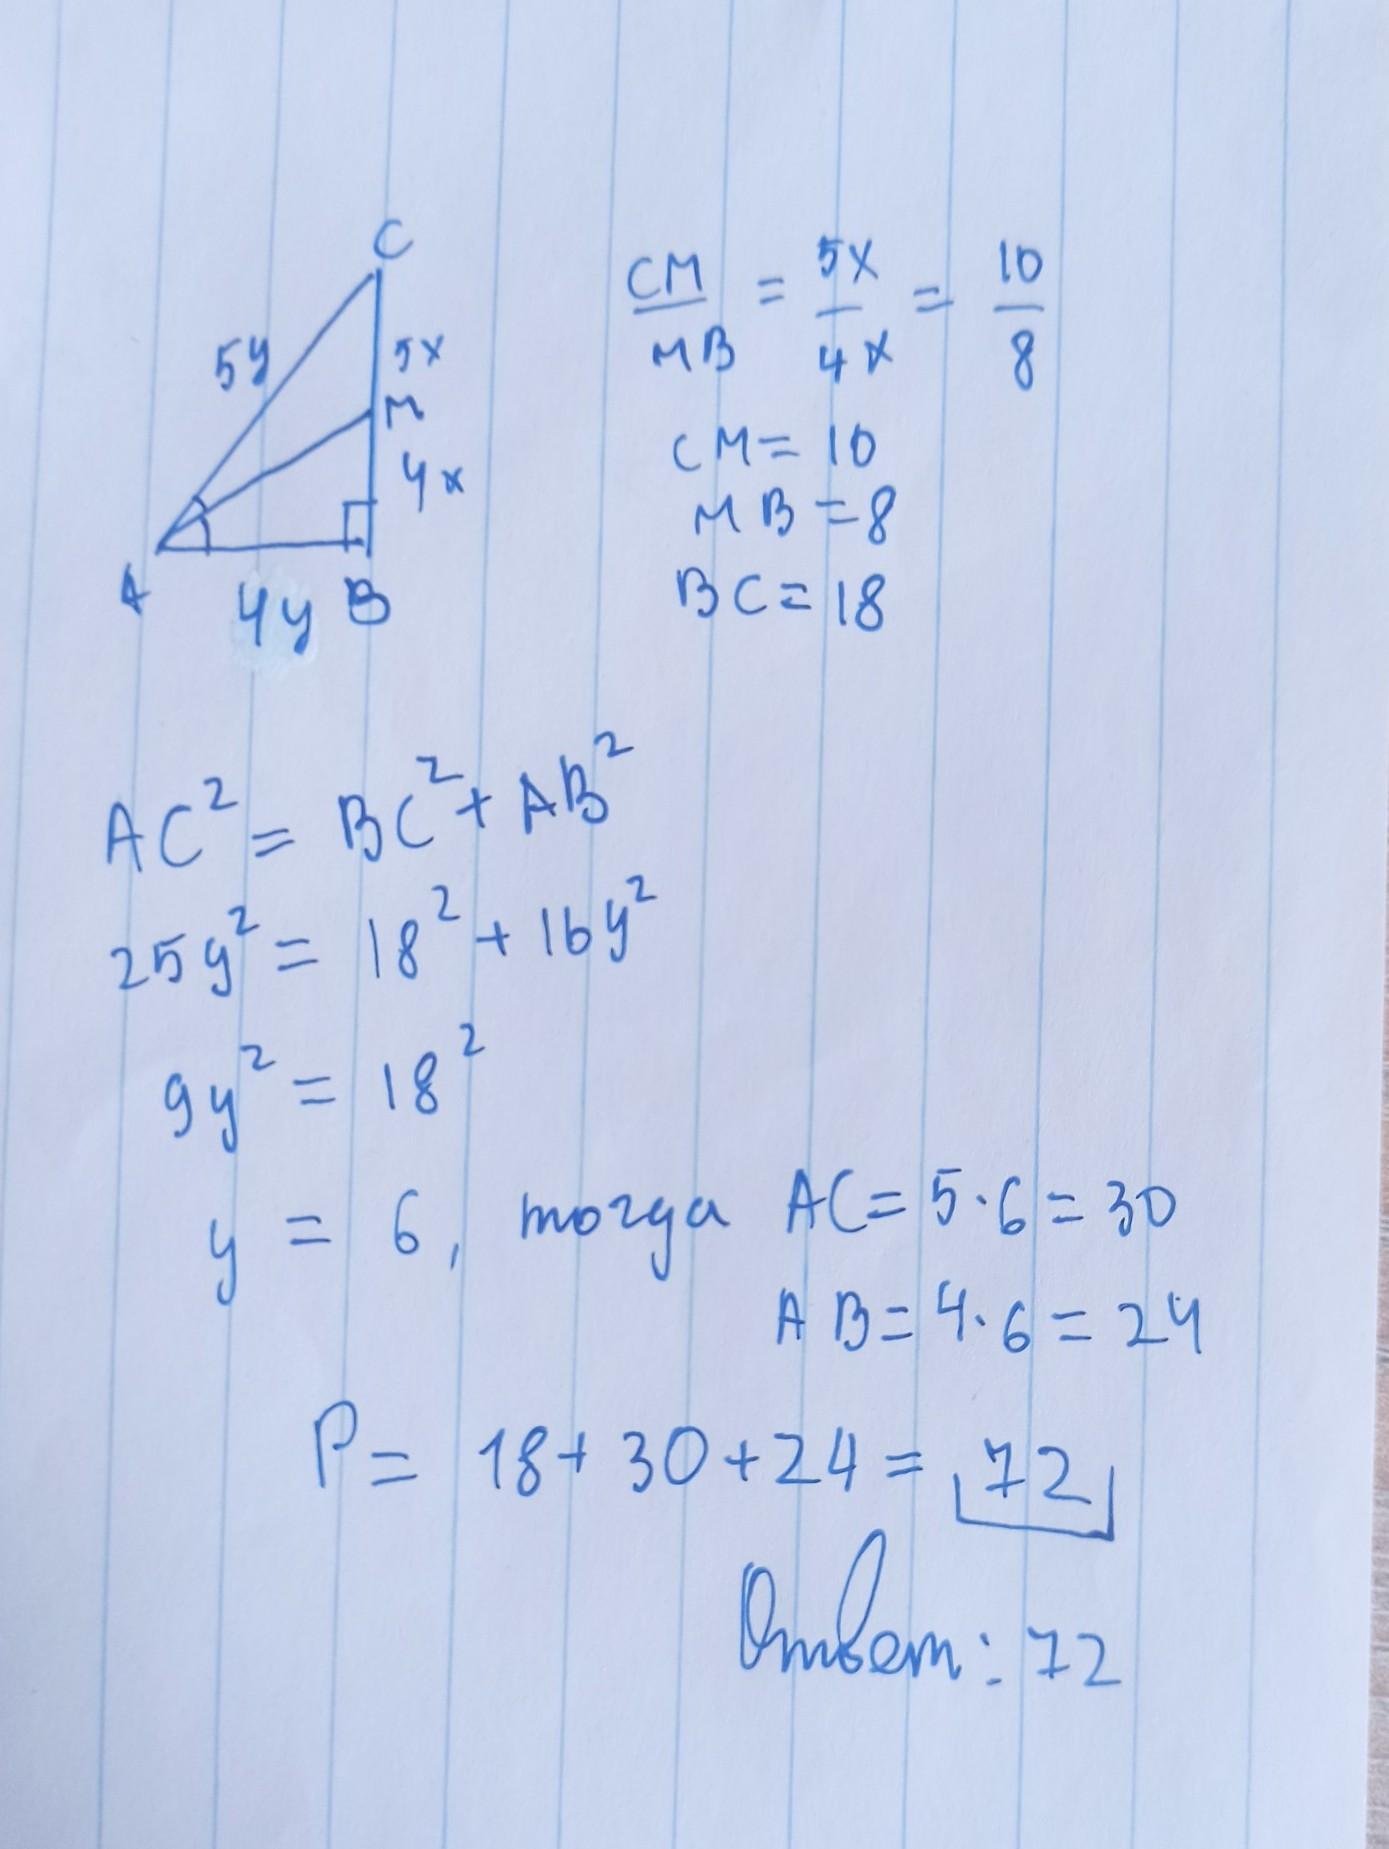 C
5y
5x
M
4x
A
4y B
CM/MB = 5x/4x = 10/8
CM = 10
MB = 8
BC = 18
AC² = BC² + AB²
25y² = 18² + 16y²
9y² = 18²
y = 6, тогда AC = 5·6 = 30
AB = 4·6 = 24
P = 18 + 30 + 24 = 72
Ответ: 72